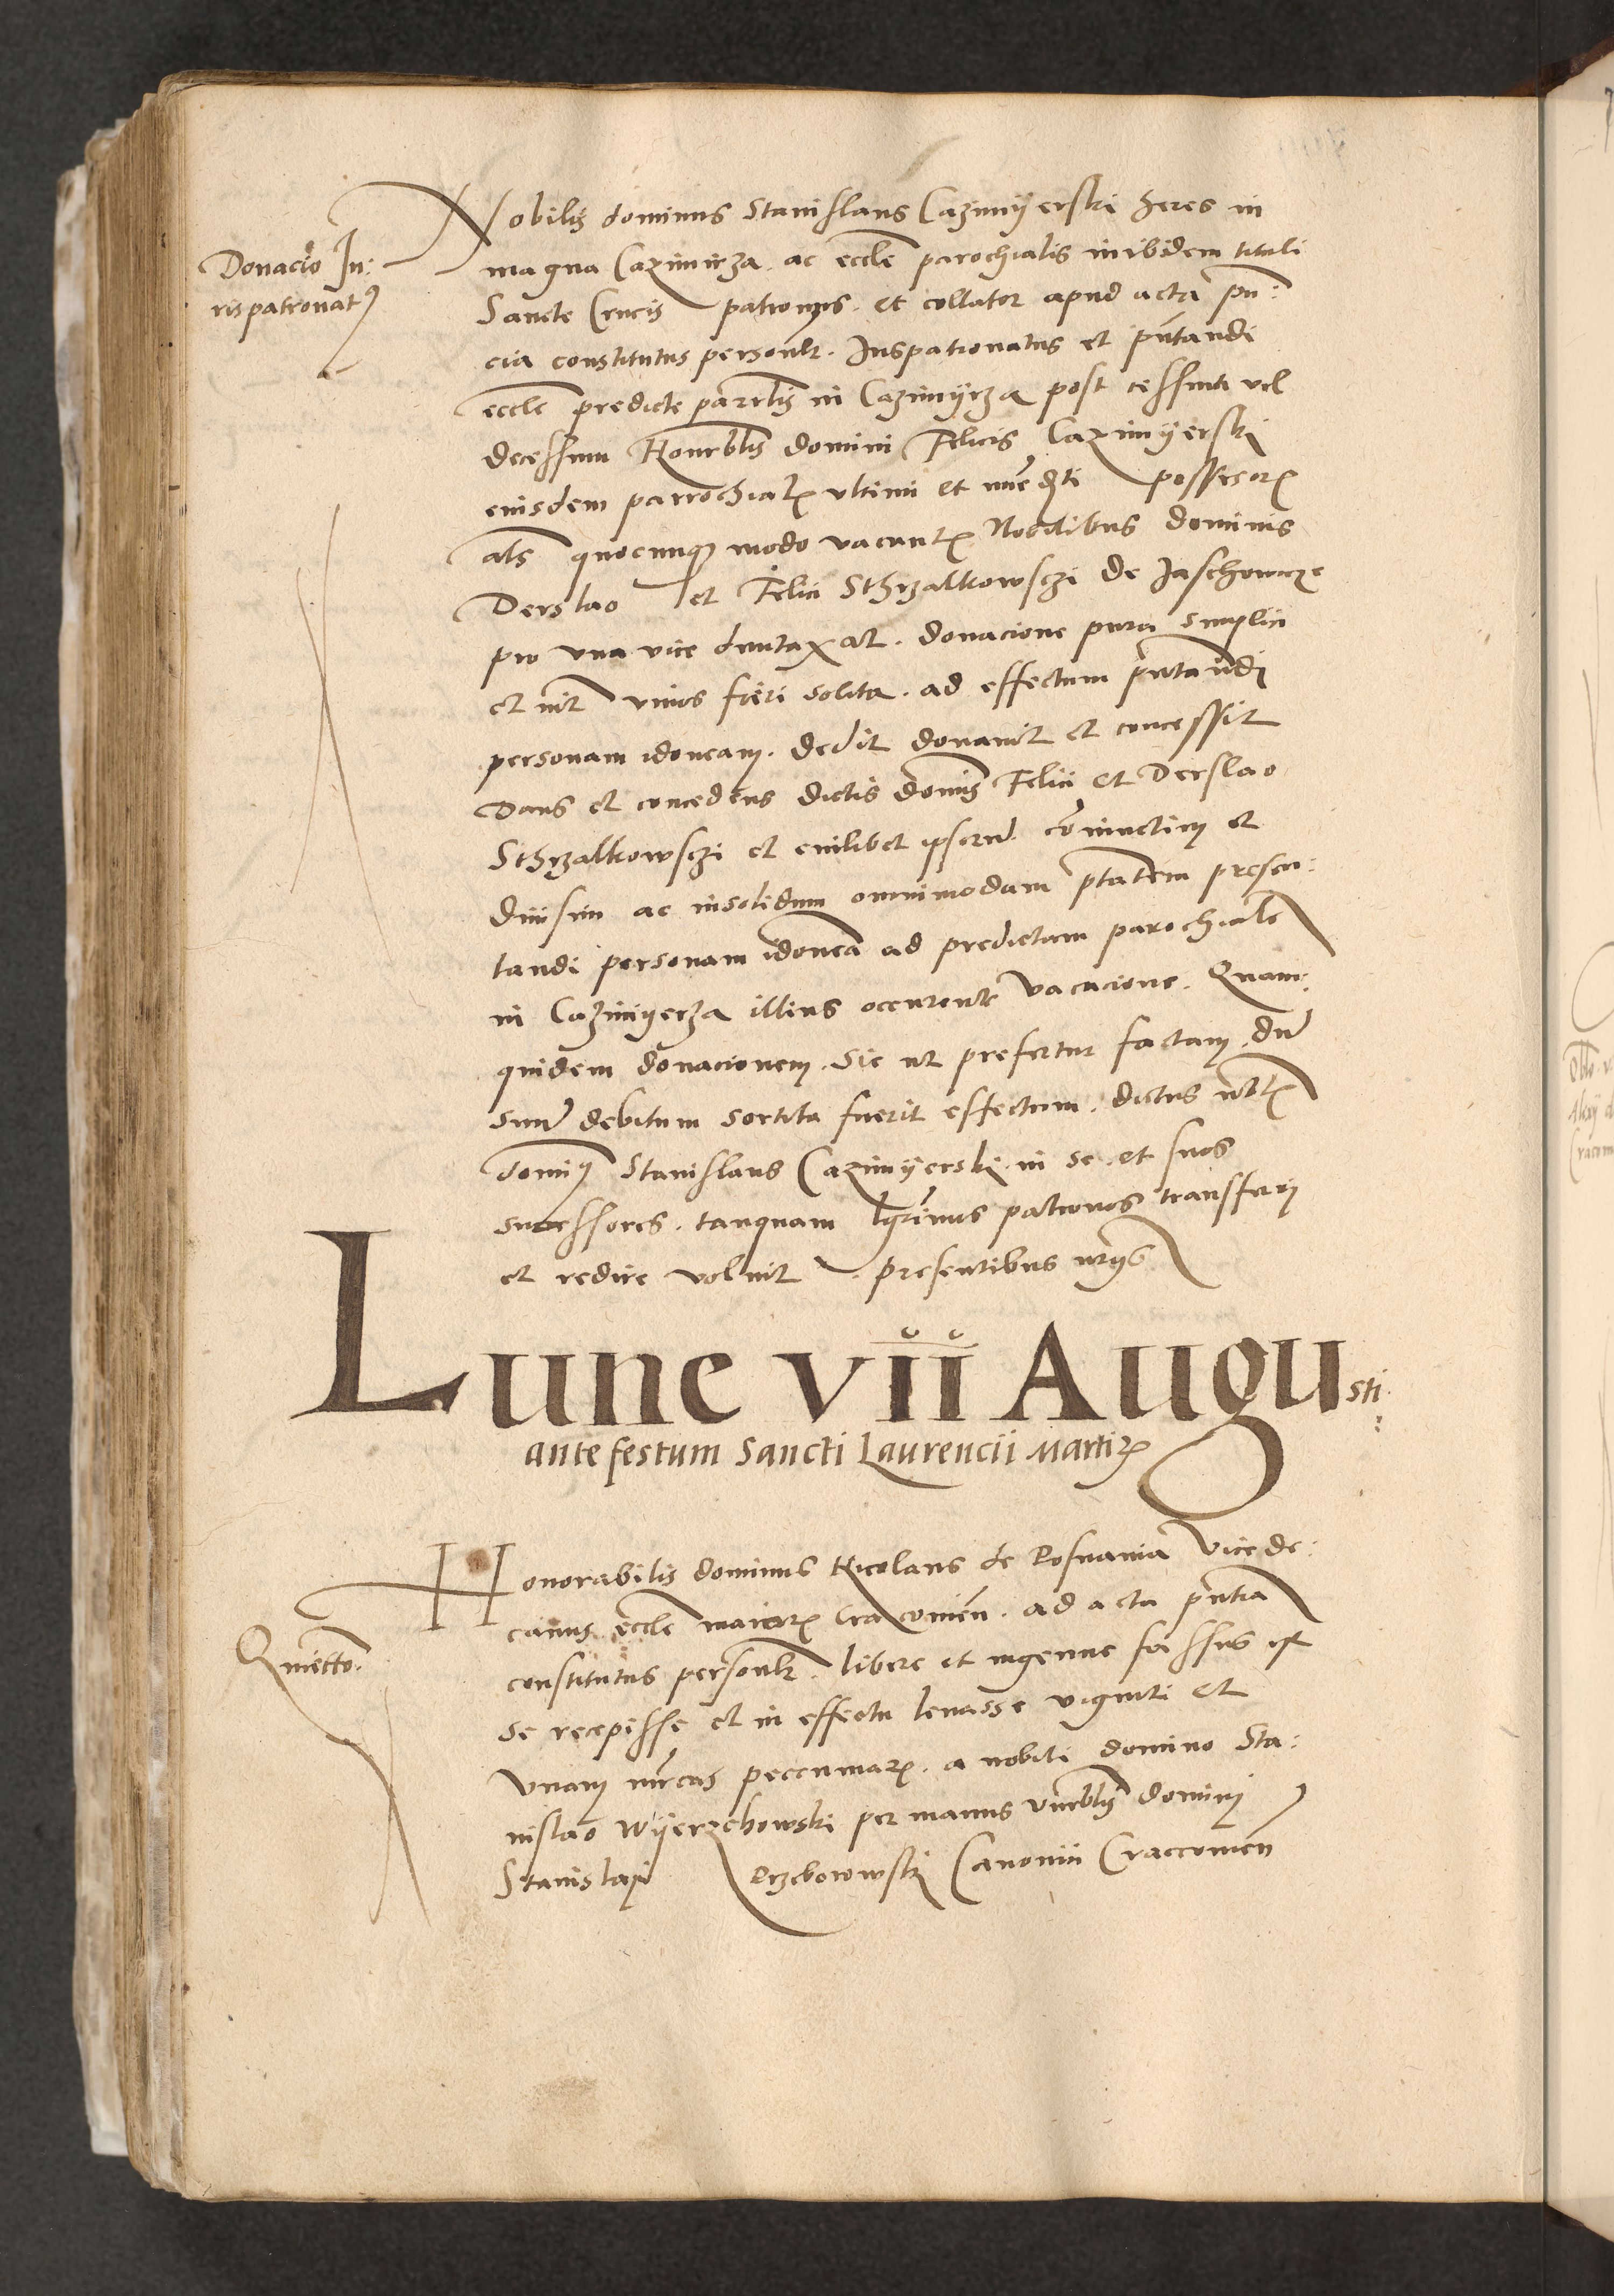 Donacio Iu:
rispatronatꝰ
Nobilis dominus Stanislaus Cazimÿerski heres in
magna Cazimirza . ac eccle parochialis inibidem tituli
Sancte Crucis patronus . et collator apud acta pn̄:
cia constitutus personlr . Iuspatronatus et pn̄tandi
eccle predicte parrlis in Cazimÿrza post cessum vel
decessum Honrblis domini Felicis Cazimÿerski
eiusdem parrochialꝭ vltimi et immediti possessorꝭ
als quocunqꝫ modo vacantꝭ Nobilibus dominis
Derslao et Felici Sthrzalkowsczi de Jaschowicze
pro vna vice duntaxat . donacione pura simplici
et intr viuos fieri solita . ad effectum pn̄tandi
personam idoneam . dedit donauit et concessit
Dans et concedens dictis domis Felici et Derslao
Sthrzalkowsczi et cuilibet ipsorum coniunctim et
diuisim ac insolidum omnimodam ptatem presen:
tandi personam idonea ad predictam parochiale
in Cazimÿerza illius occurente vacacione . Quam:
quidem donacionem . sic ut prefertur factam , dum
suum debitum sortita fuerit effectum . dictus nobilꝭ
domiꝰ Stanislaus Cazimÿerski . in se . et suos
successores . tanquam lgitimus patronos transferri
et redire voluit . presentibus
Lune vii Augusti
ante festum Sancti Laurencii Martirꝭ
Quietto.
Honorabilis dominus Nicolaus de Posnania Vicede:
canus eccle maiorꝭ Cracouien̄ . ad acta pn̄tia
constitutus personlr . libere et ingenue fassus est
se recepisse et in effectu leuasse viginti et
vnam mrcas peccuniarꝭ . a nobili domino Sta:
nislao Wÿerzchowski per manus Vnrblis domini
Stanislai Orzchowski Canonici Craccouien̄